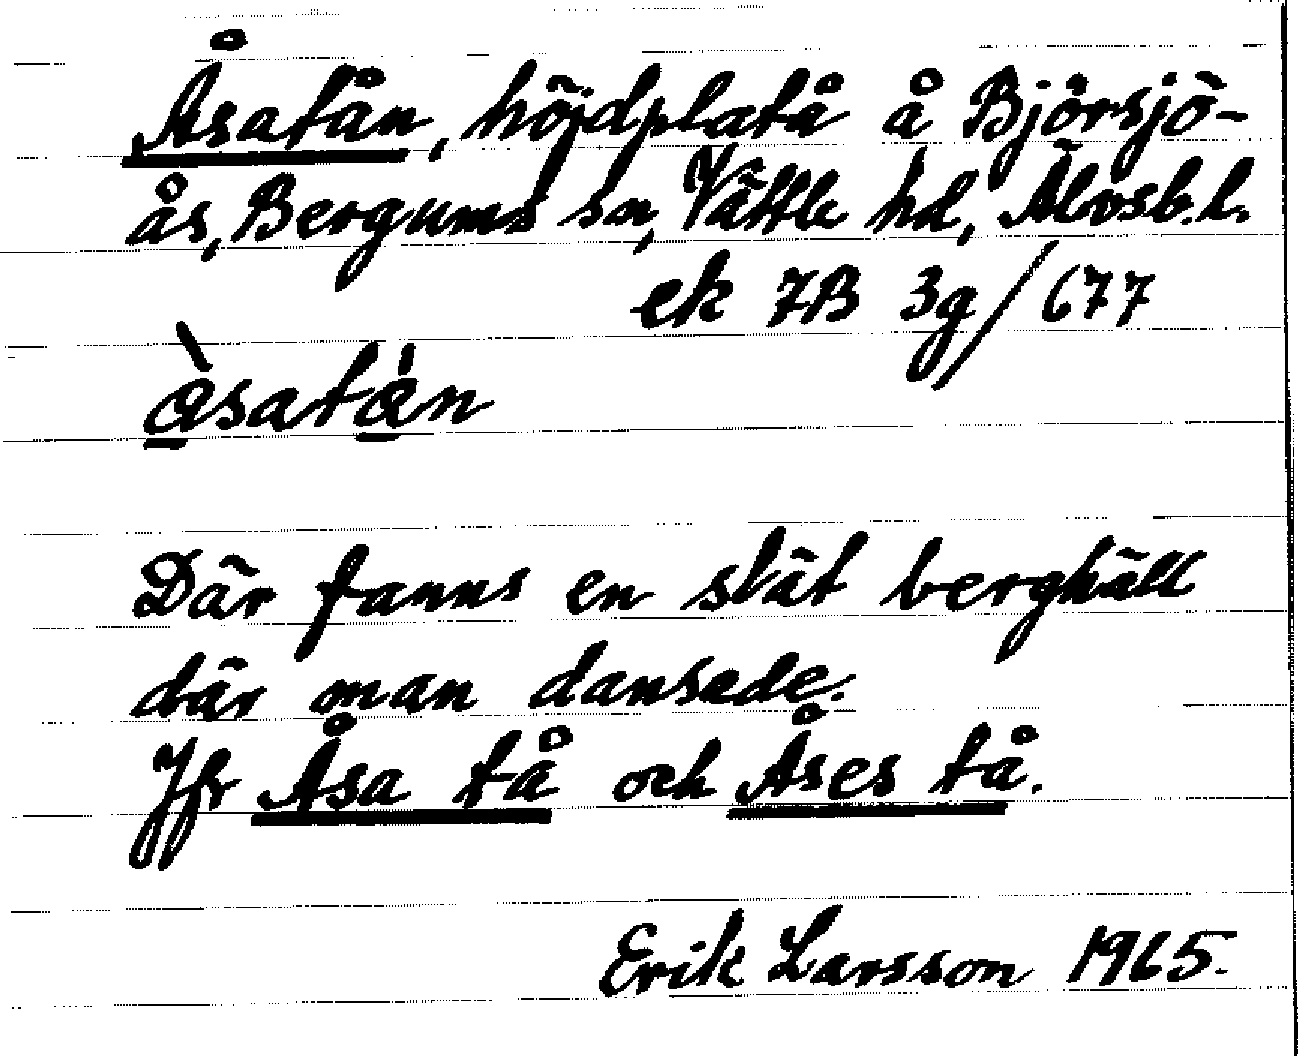 Åsatån, höjdplatå å Björsjö-
ås, Bergums sn, Vättle hd, Älvsb.l.
ek 7B 3g/677
åsatån
Där fanns en slät berghäll
där man dansade.
Jfr Åsa tå och Åses tå.
Erik Larsson 1965.